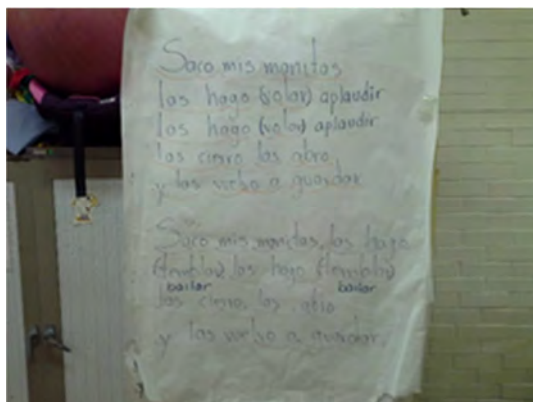 Saco mis manitas
las hago (volar) aplaudir
las hago (volar) aplaudir
las cierro las abro
y las vuelvo a guardar
Saco mis manitas, las hago
(temblar) las hago (temblar)
bailar bailar
las cierro, las abro
y las vuelvo a guardar.